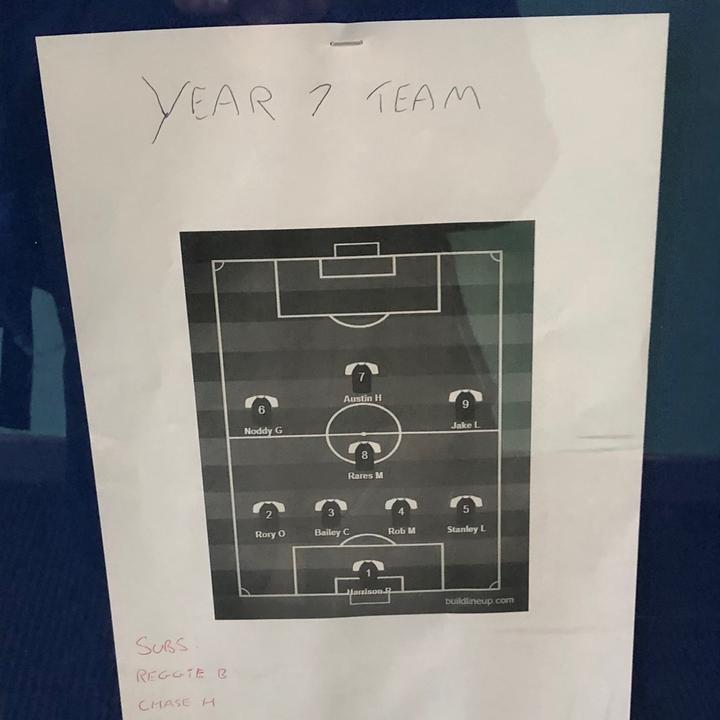 YEAR 7 TEAM
7
Austin H
6
Noddy G
9
Jake L
8
Rares M
2
Rory O
3
Bailey C
4
Rob M
5
Stanley L
1
Harrison
buildlineup.com
SUBS:
REGGIE B
CHASE H